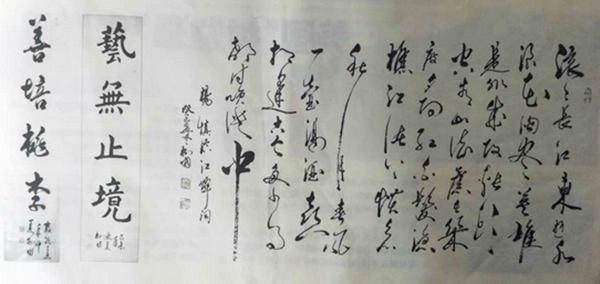 滚〻长江東逝水
浪花淘尽英雄
是非成败转头
空青山依旧在几
度夕阳红白发渔
樵江渚上惯看
秋月春风
一壶浊酒喜
相逢古今多少事
都付笑谈中
楊慎临江仙词
藝無止境
善培桃李